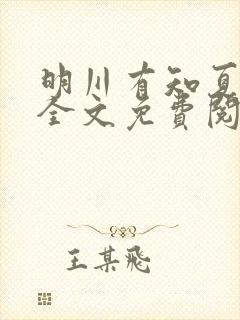 明川有知夏
全文免费阅
王某飛